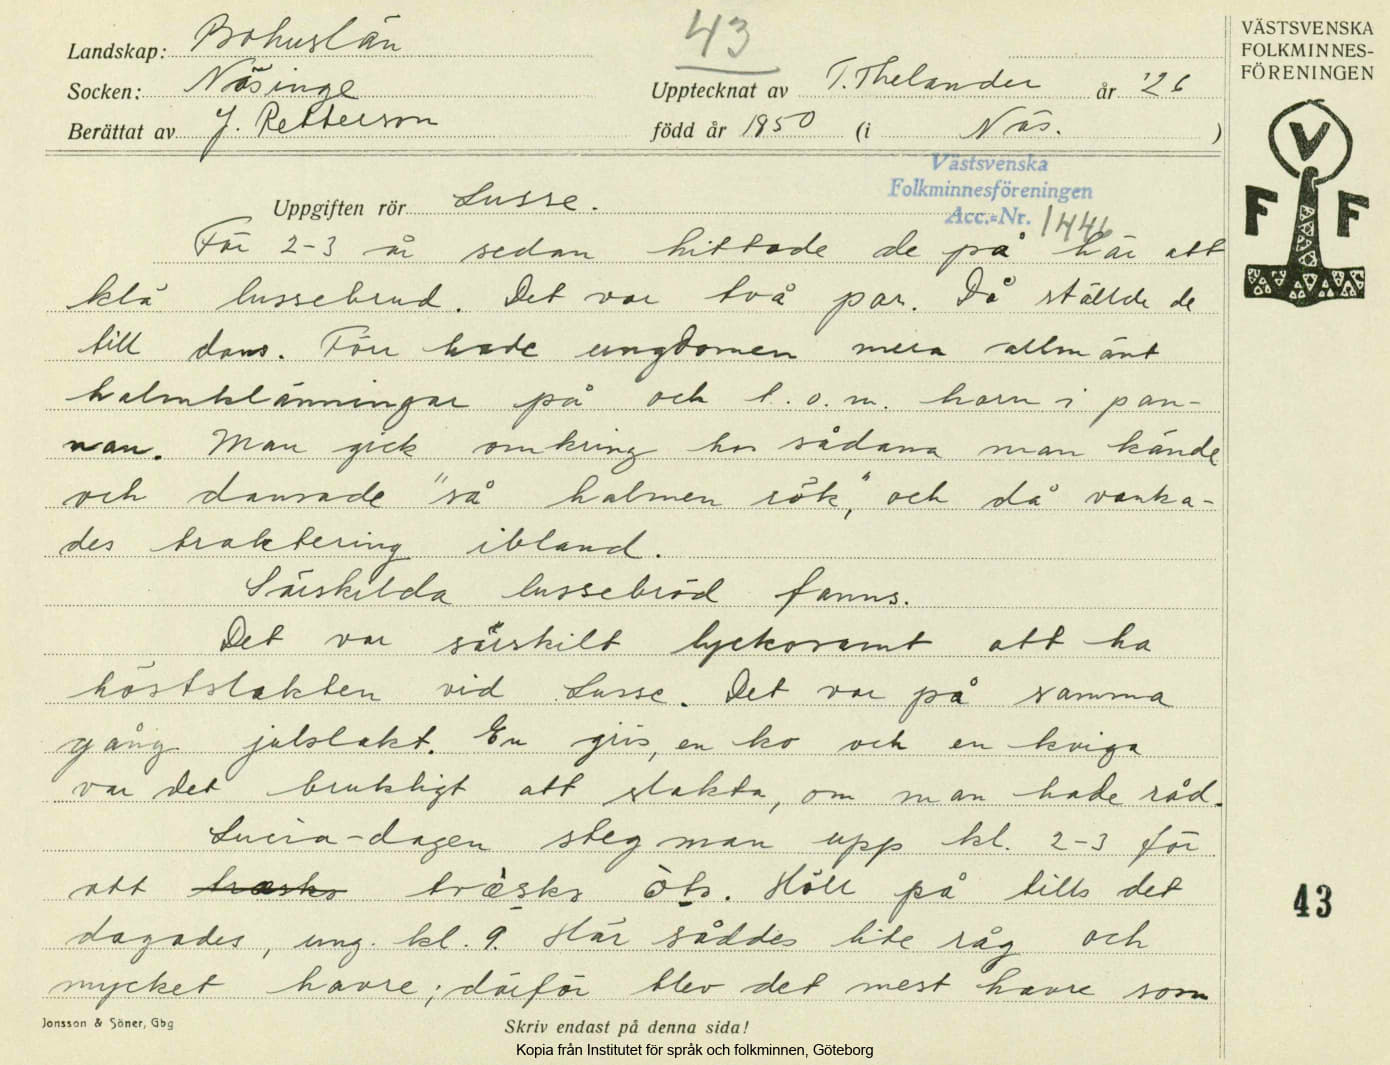 43
Landskap: Bohuslän
Socken: Näsinge
Berättat av J. Petterson
Upptecknat av T. Thelander år '26
född år 1850 (i Näs. )
VÄSTSVENSKA
FOLKMINNES-
FÖRENINGEN
V
F F
Västsvenska
Folkminnesföreningen
Acc.=Nr. 1446
Uppgiften rör Lusse.
För 2-3 år sedan hittade de på här att
klä lussebrud. Det var två par. Då ställde de
till dans. Förr hade ungdomen mera allmänt
halmklänningar på och t.o.m. horn i pan-
nan. Man gick omkring hos sådana man kände
och dansade "så halmen rök," och då vanka-
des traktering ibland.
Särskilda lussebröd fanns.
Det var särskilt lyckosamt att ha
höstslakten vid Lusse. Det var på samma
gång julslakt. En gris, en ko och en kviga
var det brukligt att slakta, om man hade råd.
Lucia-dagen steg man upp kl. 2-3 för
att träsks. Höll på tills det
dagades, ung. kl. 9. Här såddes lite råg och
mycket havre; därför blev det mest havre som
43
Jonsson & Söner, Gbg
Skriv endast på denna sida!
Kopia från Institutet för språk och folkminnen, Göteborg